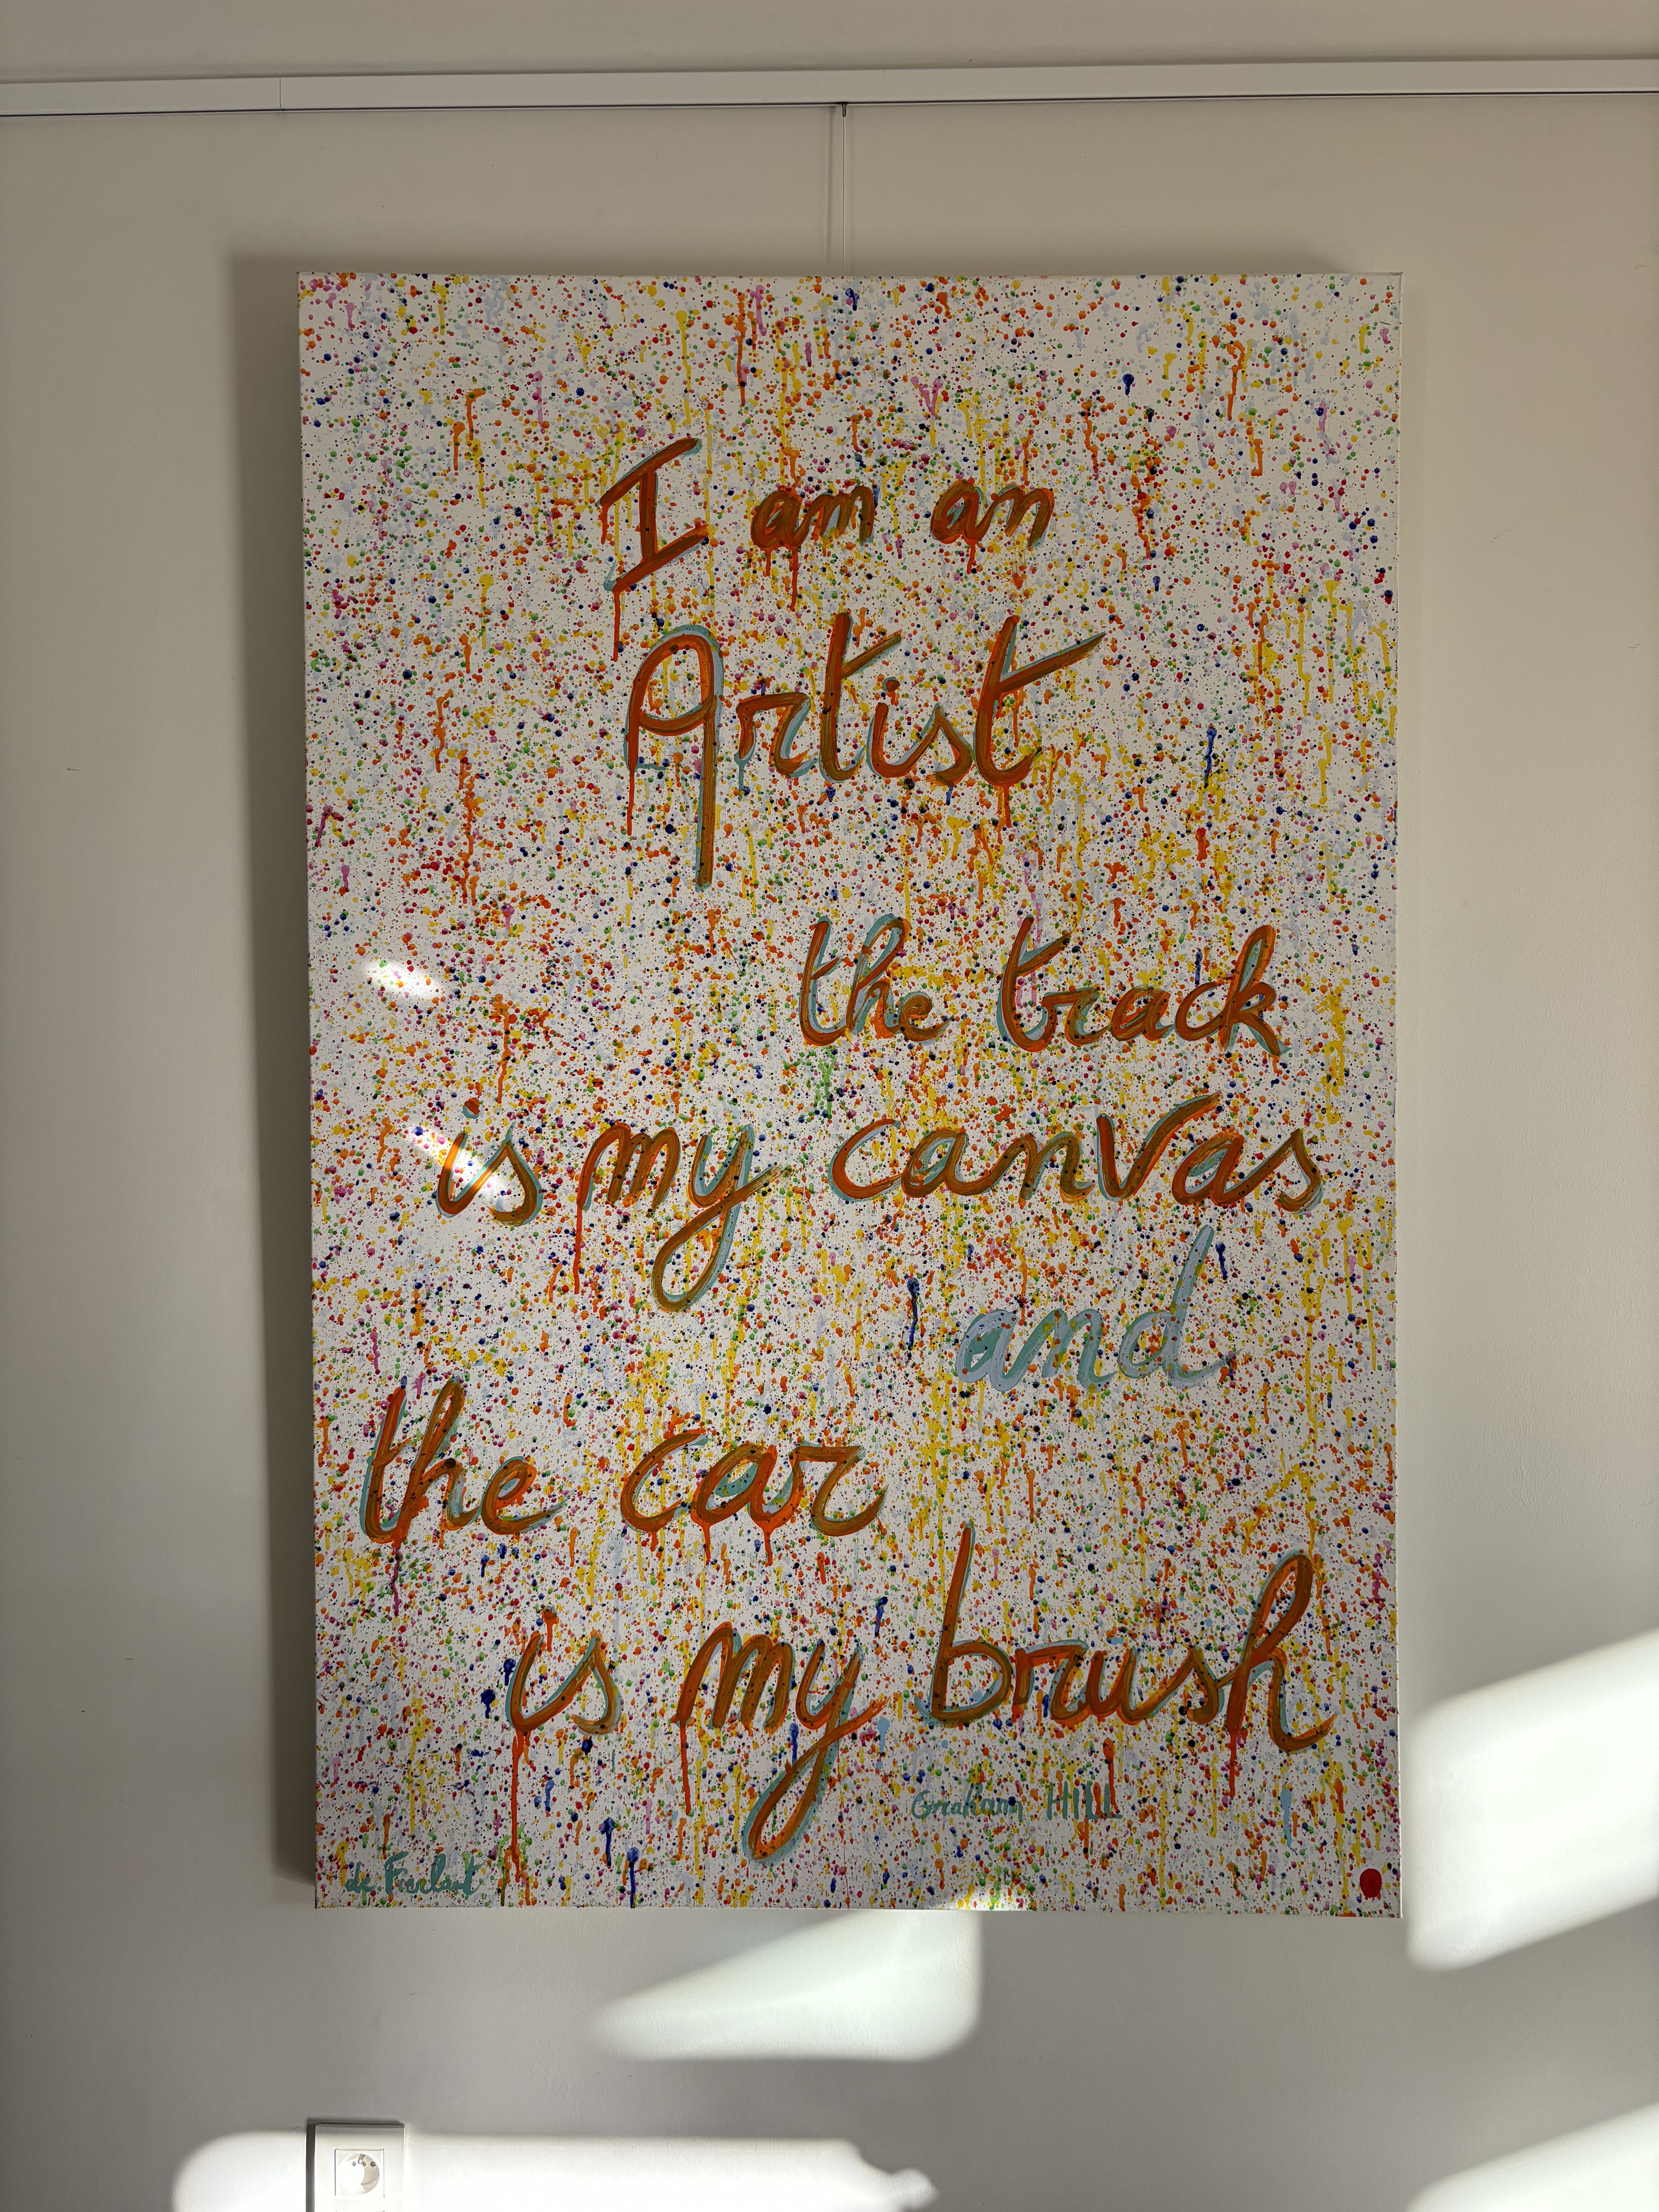 I am an
Artist
the track
is my canvas
and
the car
is my brush
Graham HILL
de Fierlant